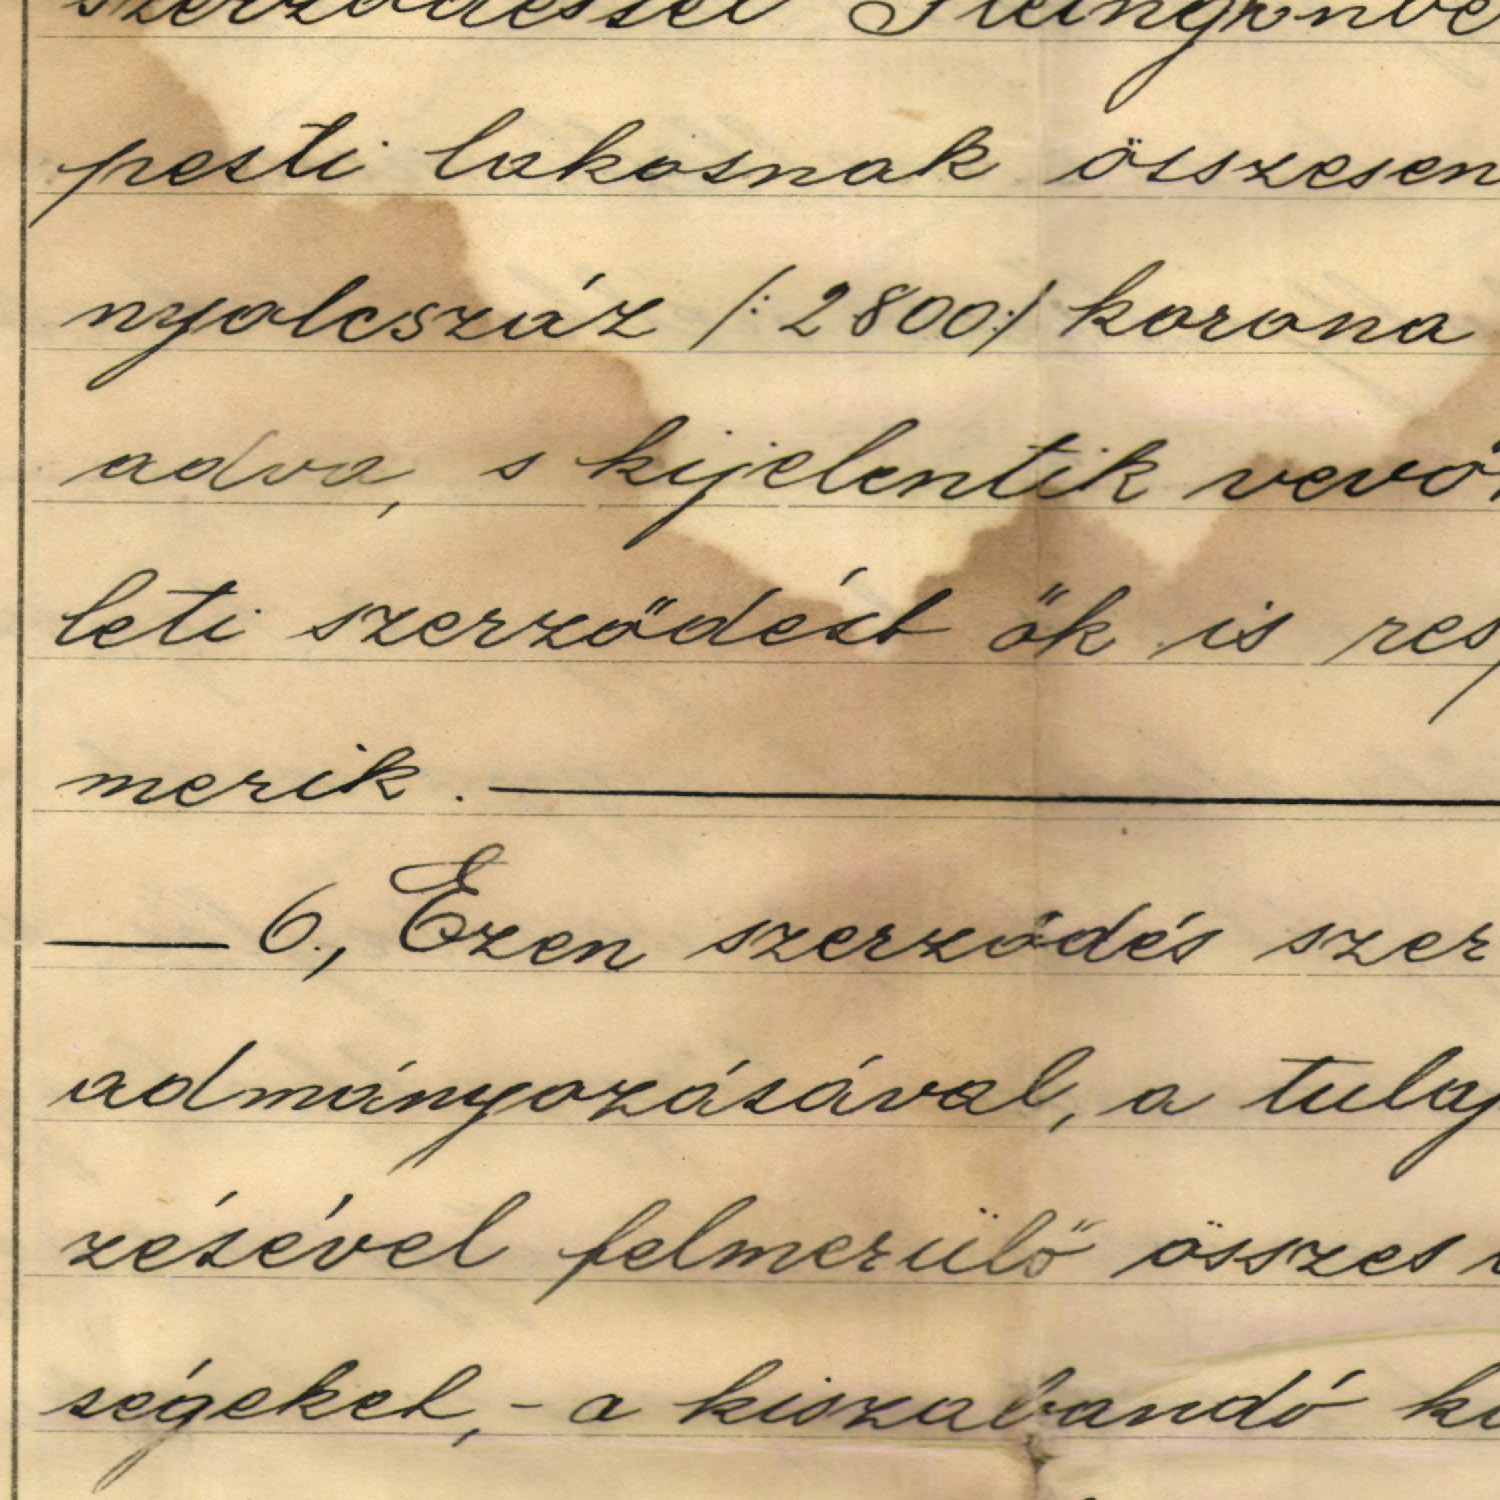 szerződéssel
pesti lakosnak összesen
nyolcszáz /: 2800 :/ korona
adva, s kijelentik vevő
leti szerződést ők is res
merik. —
— 6., Ezen szerződés szer
admányozásával, a tulaj
zésével felmerülő összes
ségeket, - a kiszabandó